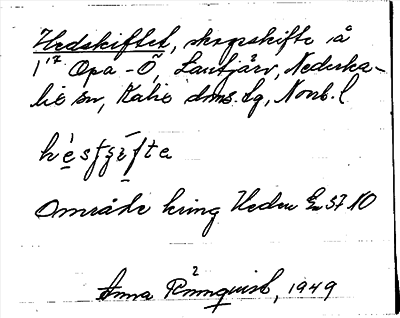 Hedskiftet, skogsskifte å
1/17 Opa-Ö, Lantjärv, Nederka-
lix sn, Kalix dms. tg, Norrb. l
hèsfʃìfta
Område kring Heden Ek 37 10
Anna Rönnqvist, 1949